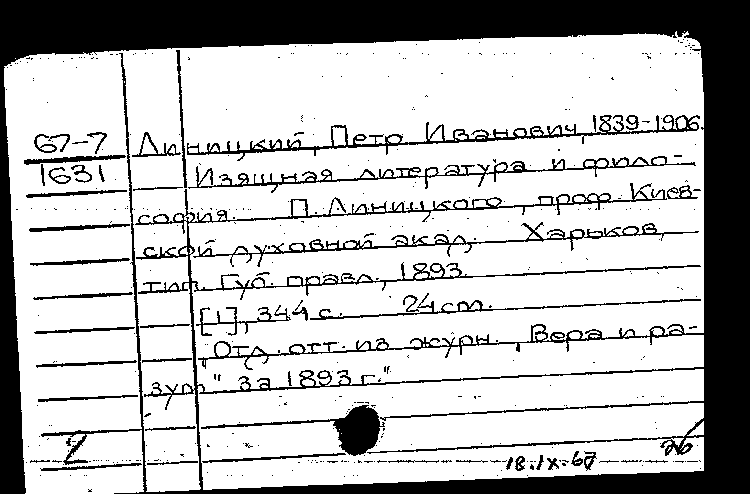 67-7 Линицкий, Петр Иванович, 1839-1906.
1631 Изящная литература и фило-
софия. П. Линицкого, проф. Киев-
ской духовной акад. Харьков,
тип. Губ. правл., 1893.
[1], 344 с. 24 см.
"Отд. отт. из журн. "Вера и ра-
зум" за 1893 г."
2
18.IX-67